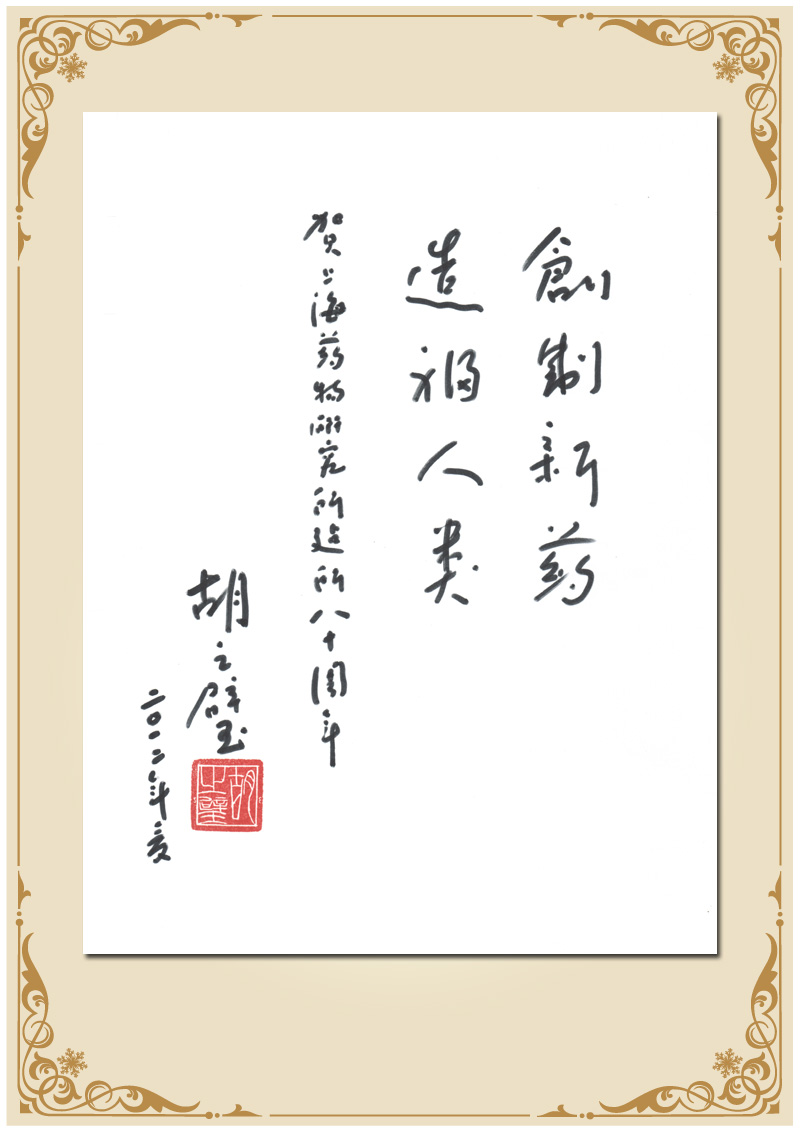 創制新药
造福人类
贺上海药物研究所建所八十周年
胡之璧
二〇一二年夏
胡之璧